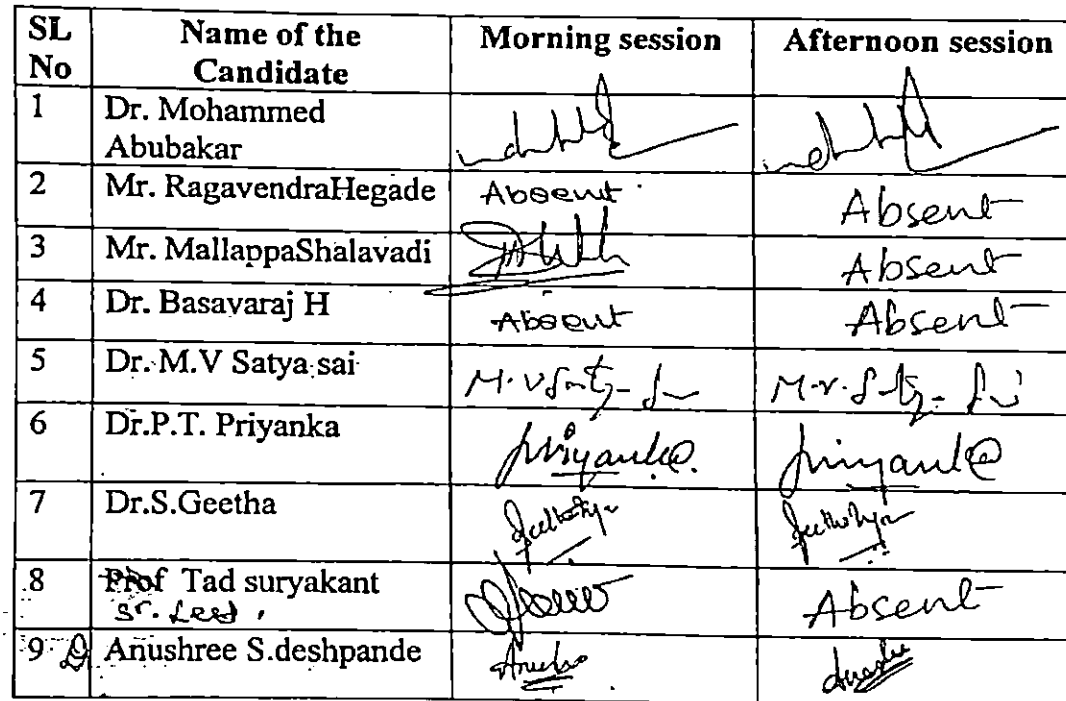 SL No Name of the Candidate Morning session Afternoon session
1 Dr. Mohammed Abubakar
2 Mr. RagavendraHegade Absent Absent
3 Mr. MallappaShalavadi Absent
4 Dr. Basavaraj H Absent Absent
5 Dr. M.V Satya sai
6 Dr.P.T. Priyanka Priyanka Priyanka
7 Dr.S.Geetha
8 Prof Tad suryakant Absent
9 Anushree S.deshpande